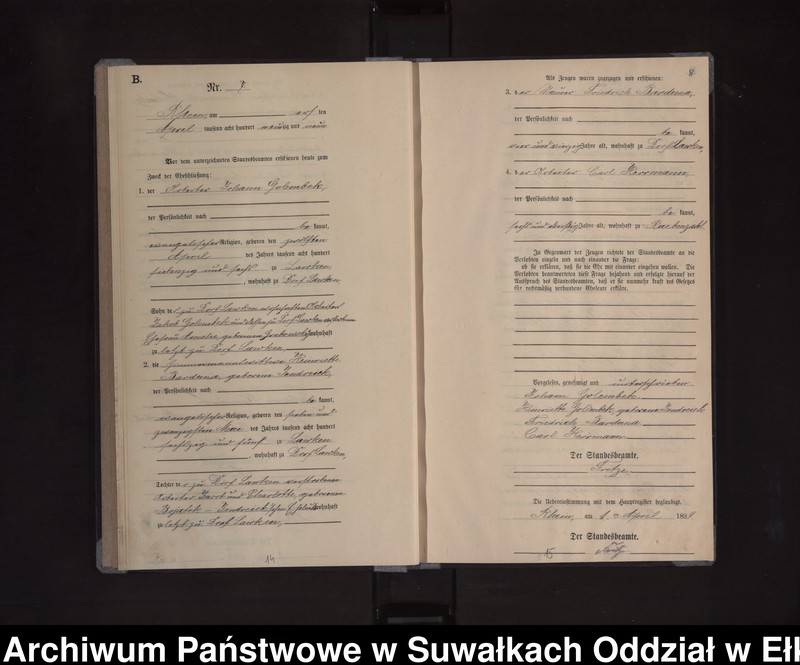 B.
Nr. 7
am ten
April tausend acht hundert neunzig und neun
Vor dem unterzeichneten Standesbeamten erschienen heute zum
Zweck der Eheschließung:
1. der Arbeiter Johann Golembek,
der Persönlichkeit nach
be kannt,
evangelischer Religion, geboren den zwölften
April des Jahres tausend acht hundert
siebenzig und sechs zu Lawken
, wohnhaft zu Dorf Lawken
Sohn des zu Dorf Lawken Arbeiter
Jakob Golembek und dessen zu Dorf Lawken
Ehefrau geborenen wohnhaft
zu letzt zu Dorf Lawken
2. die Henriette
Bardenna, geborene Jendrosch,
der Persönlichkeit nach
be kannt,
evangelischer Religion, geboren den sieben und
zwanzigsten Mai des Jahres tausend acht hundert
sechszig und fünf zu Lawken
, wohnhaft zu Dorf Lawken,
Tochter des zu Dorf Lawken verstorbenen
Arbeiter Jacob und Charlotte, geborenen
wohnhaft
zu letzt zu Dorf Lawken,
14
8
Als Zeugen waren zugezogen und erschienen:
3. der Friedrich Bardenna,
der Persönlichkeit nach
be kannt,
vier und vierzig Jahre alt, wohnhaft zu Dorf Lawken,
4. der Arbeiter Carl Herrmann,
der Persönlichkeit nach
be kannt,
sechs und Jahre alt, wohnhaft zu
In Gegenwart der Zeugen richtete der Standesbeamte an die
Verlobten einzeln und nach einander die Frage:
ob sie erklären, daß sie die Ehe mit einander eingehen wollen. Die
Verlobten beantworteten diese Frage bejahend und erfolgte hierauf der
Ausspruch des Standesbeamten, daß er sie nunmehr kraft des Gesetzes
für rechtmäßig verbundene Eheleute erkläre.
Vorgelesen, genehmigt und unterschrieben
Johann Golembek
Henriette Golembek, geborene Jendrosch
Friedrich Bardenna
Carl Herrmann
Der Standesbeamte.
Die Uebereinstimmung mit dem Hauptregister beglaubigt.
am April 1899
Der Standesbeamte.
15
Archiwum Państwowe w Suwałkach Oddział w Eł